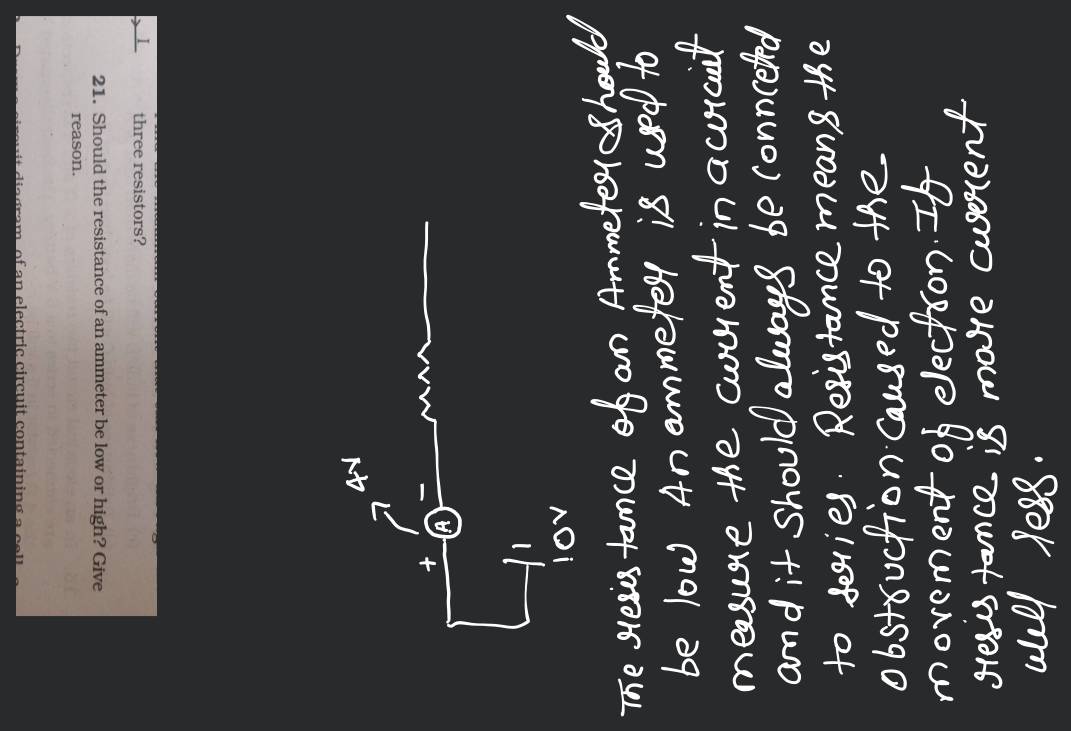 three resistors?
21. Should the resistance of an ammeter be low or high? Give
reason.
circuit diagram of an electric circuit containing a cell
+ A −
10V
The resistance of an Ammeter should
be low An ammeter is used to
measure the current in a circuit
and it should always be connceted
to series. Resistance means the
obstruction caused to the
movement of electron. If
resistance is more current
will less.